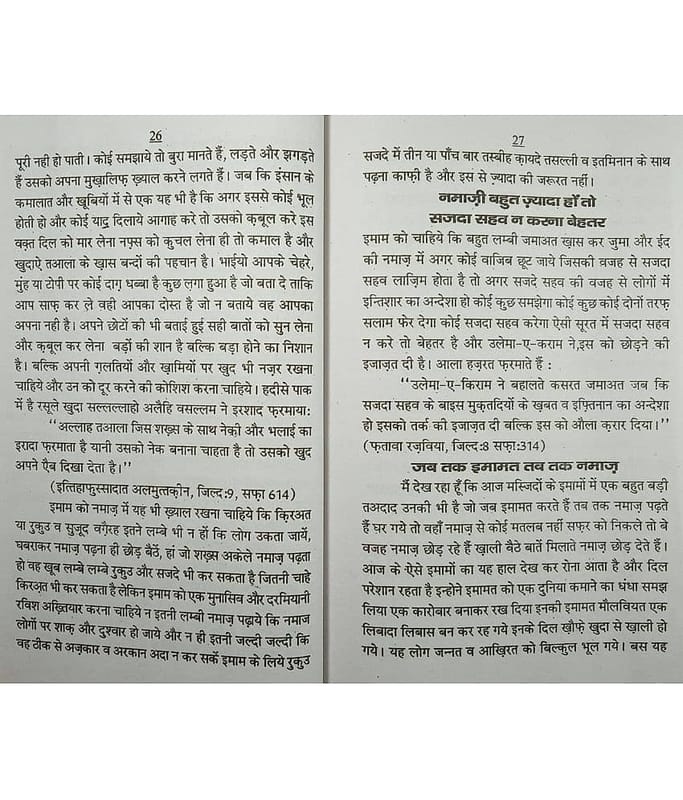 26
पूरी नही हो पाती। कोई समझाये तो बुरा मानते हैं, लड़ते और झगड़ते
हैं उसको अपना मुख़ालिफ़ ख़्याल करने लगते हैं। जब कि इंसान के
कमालात और ख़ूबियों में से एक यह भी है कि अगर इससे कोई भूल
होती हो और कोई याद़ दिलाये आगाह करे तो उसको क़बूल करे इस
वक़्त दिल को मार लेना नफ़्स को कुचल लेना ही तो कमाल है और
खुदाऐ तआला के ख़ास बन्दों की पहचान है। भाईयो आपके चेहरे,
मुंह या टोपी पर कोई दाग़ धब्बा है कुछ लगा हुआ है जो बता दे ताकि
आप साफ़ कर ले वही आपका दोस्त है जो न बताये वह आपका
अपना नही है। अपने छोटों की भी बताई हुई सही बातों को सुन लेना
और क़बूल कर लेना बड़ों की शान है बल्कि बड़ा होने का निशान
है। बल्कि अपनी ग़लतियों और ख़ामियों पर खुद भी नज़र रखना
चाहिये और उन को दूर करने की कोशिश करना चाहिये। हदीसे पाक
में है रसूले खुदा सल्लल्लाहो अलैहि वसल्लम ने इरशाद फ़रमाया:
‘‘अल्लाह तआला जिस शख़्स के साथ नेकी और भलाई का
इरादा फ़रमाता है यानी उसको नेक बनाना चाहता है तो उसको खुद
अपने ऐब दिखा देता है।’’
(इत्तिहाफुस्सादात अलमुत्तक़ीन, जिल्द:9, सफ़ा 614)
इमाम को नमाज़ में यह भी ख़्याल रखना चाहिये कि क़िरअत
या रुकुउ व सुजूद वग़ैरह इतने लम्बे भी न हों कि लोग उकता जायें,
घबराकर नमाज़ पढ़ना ही छोड़ बैठें, हां जो शख़्स अकेले नमाज़ पढ़ता
हो वह खूब लम्बे लम्बे रुकुउ और सजदे भी कर सकता है जितनी चाहे
किरअत भी कर सकता है लेकिन इमाम को एक मुनासिब और दरमियानी
रविश अख़्तियार करना चाहिये न इतनी लम्बी नमाज़ पढ़ाये कि नमाज़
लोगों पर शाक़ और दुश्वार हो जाये और न ही इतनी जल्दी जल्दी कि
वह ठीक से अज़कार व अरकान अदा न कर सकें इमाम के लिये रुकुउ
27
सजदे में तीन या पाँच बार तस्बीह क़ायदे तसल्ली व इतमिनान के साथ
पढ़ना काफ़ी है और इस से ज़्यादा की जरूरत नहीं।
नमाज़ी बहुत ज़्यादा हों तो
सजदा सहव न करना बेहतर
इमाम को चाहिये कि बहुत लम्बी जमाअत ख़ास कर जुमा और ईद
की नमाज़ में अगर कोई वाजिब छूट जाये जिसकी वजह से सजदा
सहव लाज़िम होता है तो अगर सजदे सहव की वजह से लोगों में
इन्तिशार का अन्देशा हो कोई कुछ समझेगा कोई कुछ कोई दोनों तरफ़
सलाम फेर देगा कोई सजदा सहव करेगा ऐसी सूरत में सजदा सहव
न करे तो बेहतर है और उलेमा-ए-कराम ने इस को छोड़ने की
इजाज़त दी है। आला हज़रत फ़रमाते हैं :
‘‘उलेमा-ए-किराम ने बहालते कसरत जमाअत जब कि
सजदा सहव के बाइस मुक़तदियों के ख़बत व इफ़्तिनान का अन्देशा
हो इसको तर्क की इजाज़त दी बल्कि इस को औला क़रार दिया।’’
(फ़तावा रज़विया, जिल्द:8 सफ़ा:314)
जब तक इमामत तब तक नमाज़
मैं देख रहा हूँ कि आज मस्जिदों के इमामों में एक बहुत बड़ी
तअदाद उनकी भी है जो जब इमामत करते हैं तब तक नमाज़ पढ़ते
हैं घर गये तो वहाँ नमाज़ से कोई मतलब नहीं सफ़र को निकले तो बे
वजह नमाज़ छोड़ रहे हैं ख़ाली बैठे बातें मिलाते नमाज़ छोड़ देते हैं।
आज के ऐसे इमामों का यह हाल देख कर रोना आता है और दिल
परेशान रहता है इन्होने इमामत को एक दुनिया कमाने का धंधा समझ
लिया एक कारोबार बनाकर रख दिया इनकी इमामत मौलवियत एक
लिबादा लिबास बन कर रह गये इनके दिल ख़ौफ़े खुदा से ख़ाली हो
गये। यह लोग जन्नत व आख़िरत को बिल्कुल भूल गये। बस यह